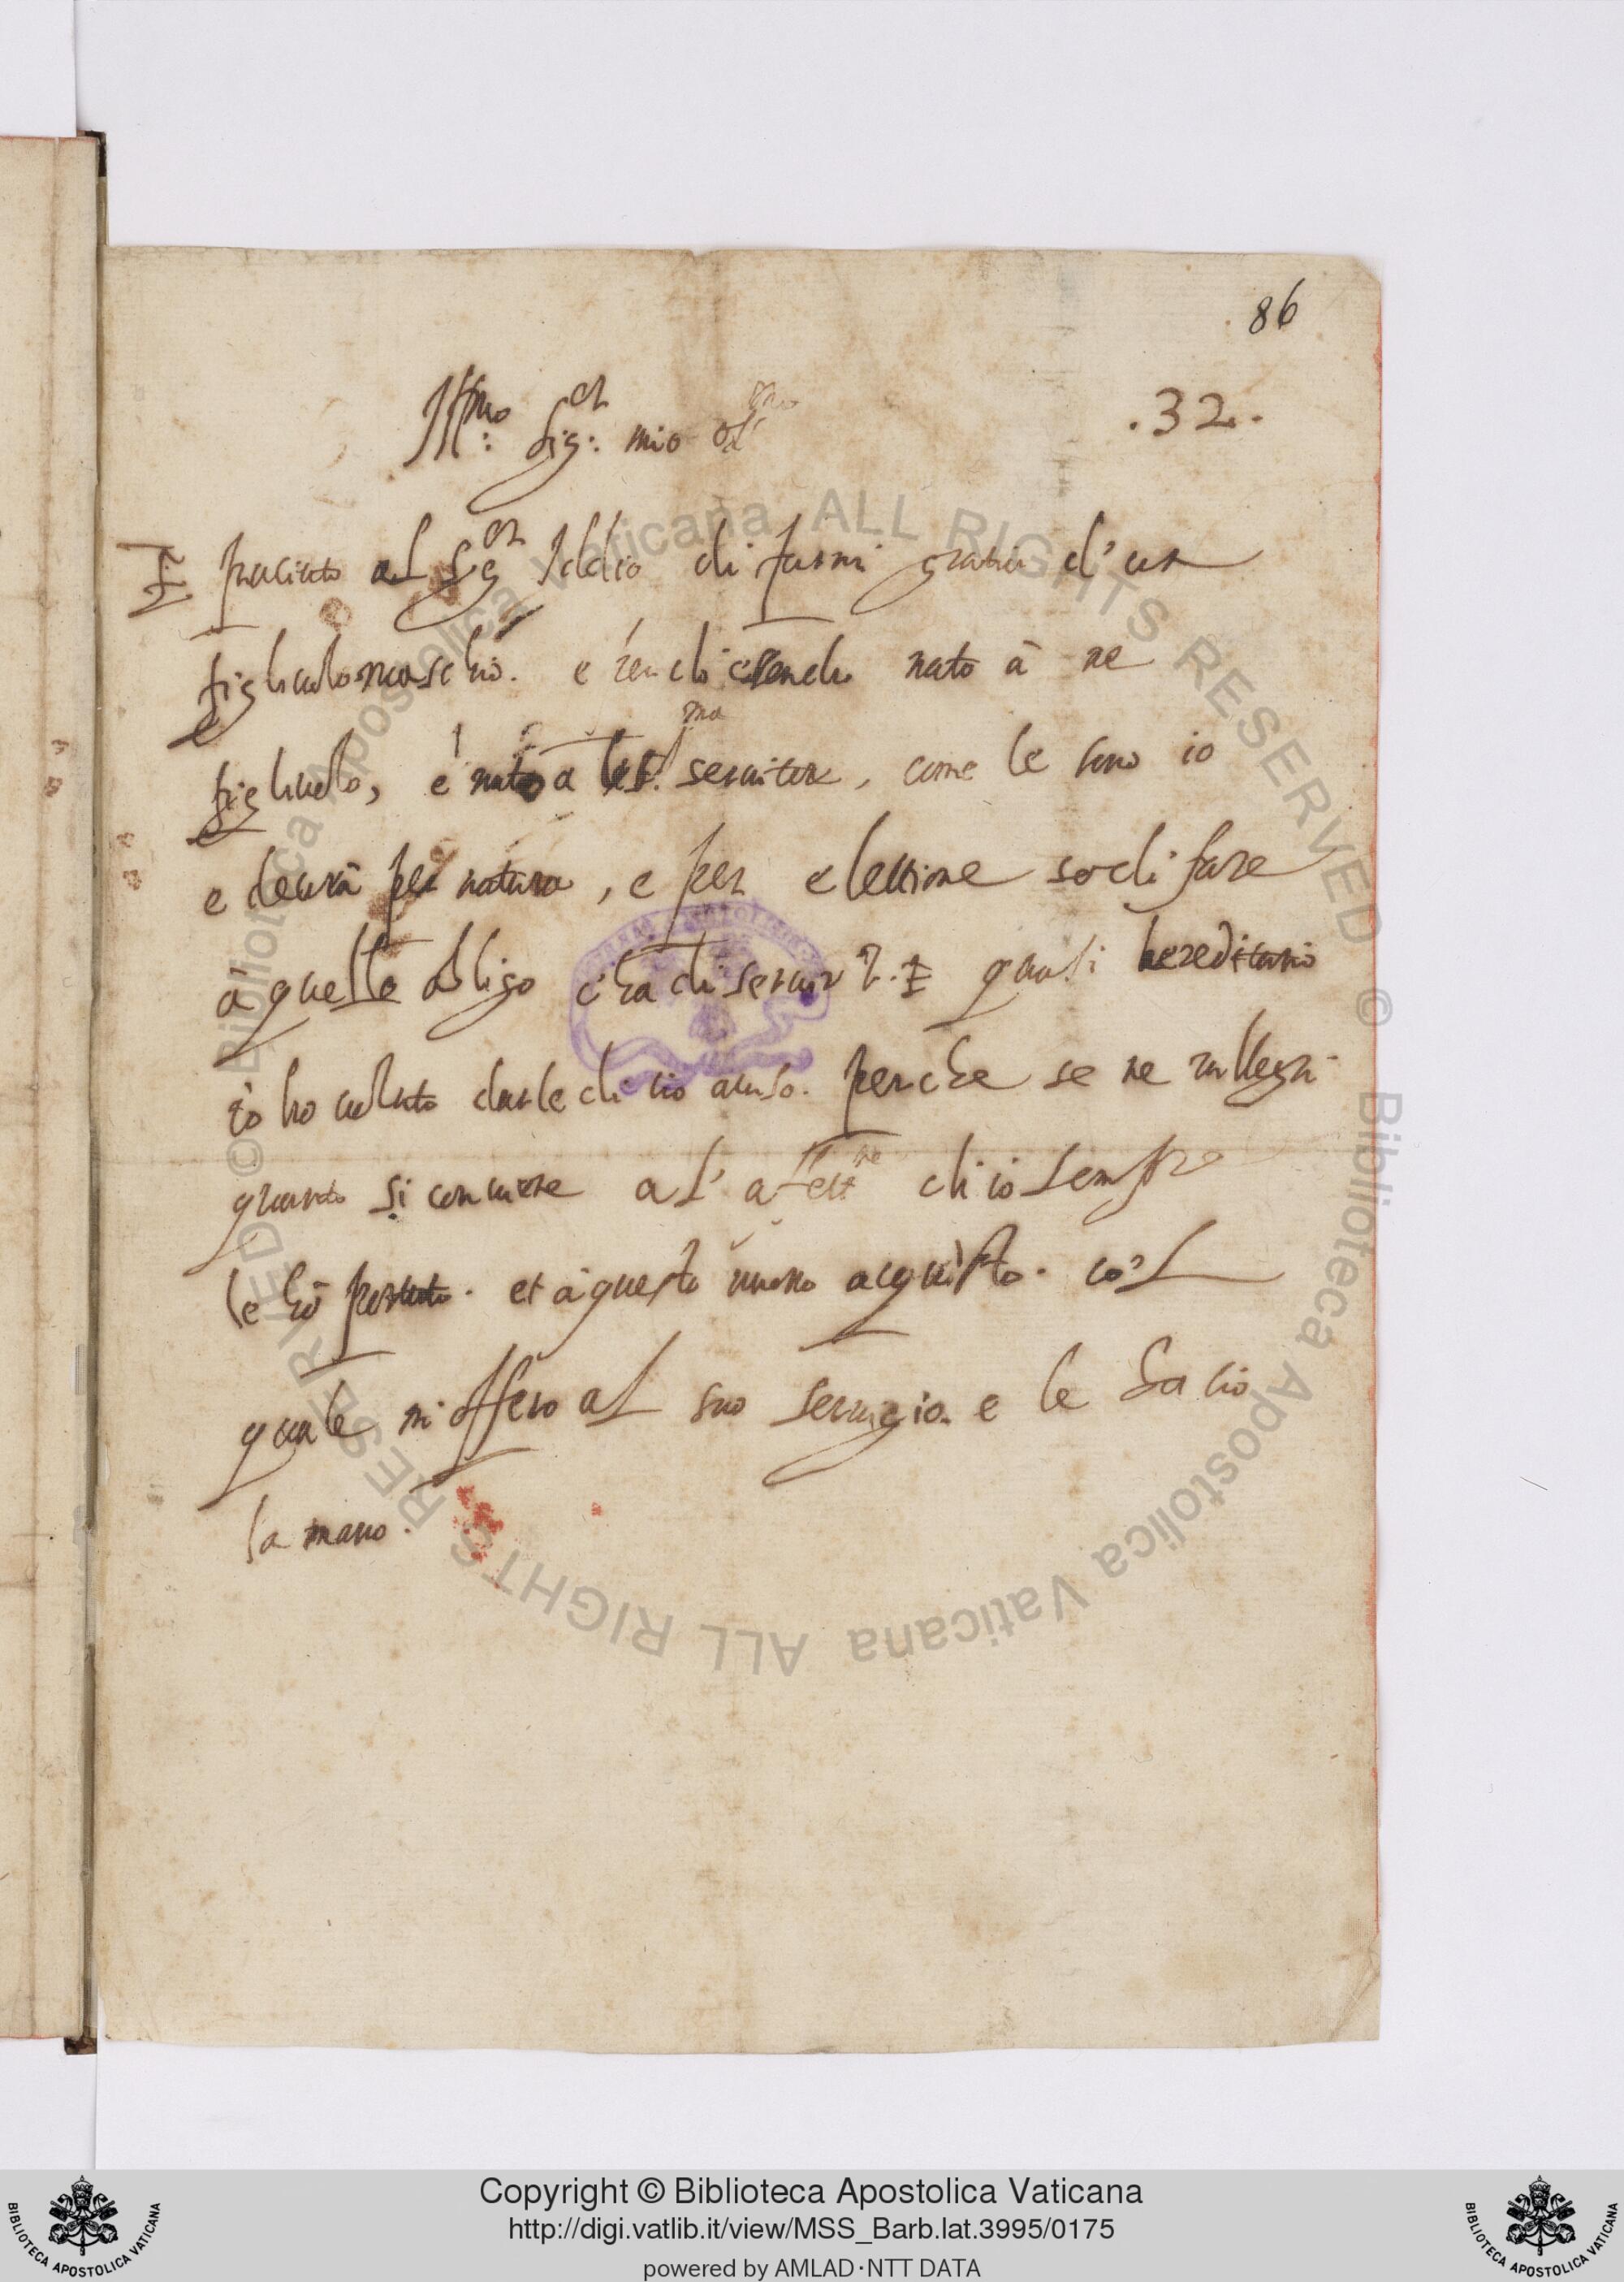 86
Ill:mo Sig:or mio oss.mo
.32.
È piaciuto al Sig.or Iddio di farmi gratia d'un
figliuolo maschio. e perche essendo nato à me
figliuolo, è nato a lei servitore, come le sono io
e deurà per natura, e per elettione sodisfare
à quello obligo c'ha di servir quasi hereditario
io ho voluto darle di ciò aviso. perche se ne rallegri
quanto si conviene al' affett.ne ch'io sempre
le hò portato. et à questo nuovo acquisto. co'l
quale m'offero al suo servigio. e le bacio
la mano.
© Biblioteca Apostolica Vaticana ALL RIGHTS RESERVED © Biblioteca Apostolica Vaticana ALL RIGHTS RESERVED
BIBLIOTECA APOSTOLICA VATICANA
Copyright © Biblioteca Apostolica Vaticana
http://digi.vatlib.it/view/MSS_Barb.lat.3995/0175
powered by AMLAD·NTT DATA
BIBLIOTECA APOSTOLICA VATICANA